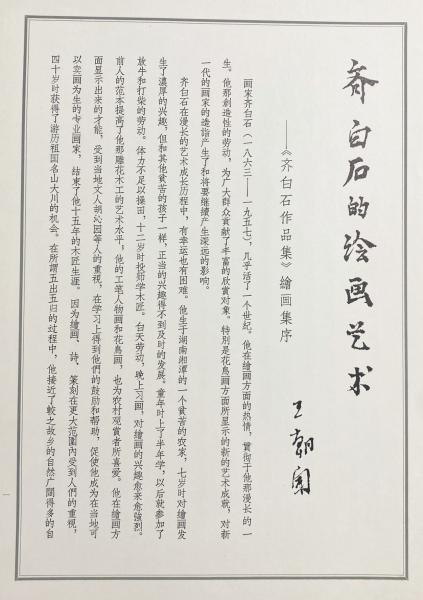 齐白石的绘画艺术
——《齐白石作品集》繪画集序
王朝聞
画家齐白石(一八六三——一九五七),几乎活了一个世纪。他在繪画方面的热情,貫彻于他那漫长的一
生。他那創造性的劳动,为广大群众貢献了丰富的欣賞对象。特別是花鳥画方面所显示的新的艺术成就,对新
一代的画家的造詣产生了和将要继續产生深远的影响。
齐白石在漫长的艺术成长历程中,有幸运也有困难。他生于湖南湘潭的一个貧苦的农家,七岁时对繪画发
生了濃厚的兴趣,但和其他貧苦的孩子一样,正当的兴趣得不到及时的发展。童年时上了半年学,以后就参加了
放牛和打柴的劳动。体力不足以操田,十二岁时投师学木匠。白天劳动,晚上习画,对繪画的兴趣愈来愈強烈。
前人的范本提高了他那雕花木工的艺术水平,他的工笔人物画和花鳥画,也为农村观賞者所喜爱。他在繪画方
面显示出来的才能,受到当地文人胡沁园等人的重視,在学习上得到他們的鼓励和帮助,促使他成为在当地可
以卖画为生的专业画家,結束了他十五年的木匠生涯。因为繪画、詩、篆刻在更大范圍內受到人們的重視,
四十岁时获得了游历祖国名山大川的机会。在所謂五出五归的过程中,他接近了較之故乡的自然广闊得多的自